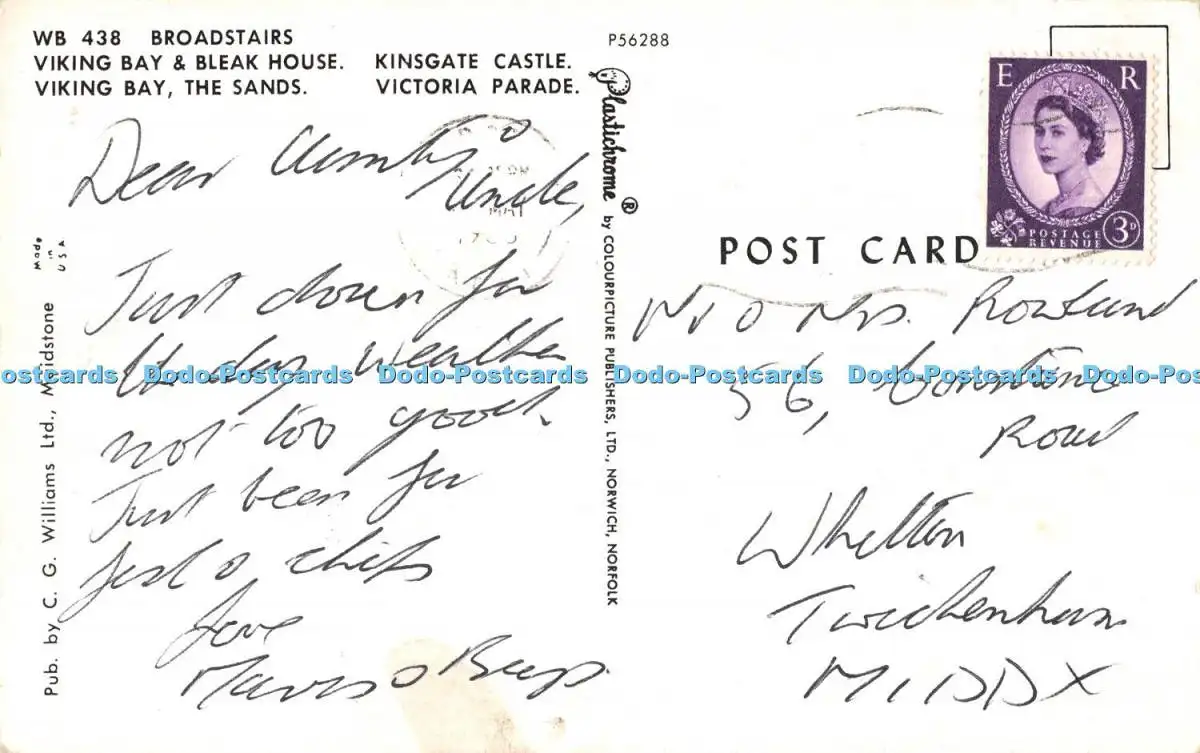 WB 438 BROADSTAIRS
VIKING BAY & BLEAK HOUSE. KINSGATE CASTLE.
VIKING BAY, THE SANDS. VICTORIA PARADE.
P56288
Plastichrome ® by COLOURPICTURE PUBLISHERS, LTD., NORWICH, NORFOLK
Made in USA
Pub. by C. G. Williams Ltd., Maidstone
Dear Aunty &
Uncle,
Just down for
the day weather
not too good.
Just been for
fish & chips
Love
&
E R
POSTAGE
REVENUE
3D
POST CARD
Mr & Mrs. Rowland
56,
Road
Whitton
Twickenham
MIDDX
Dodo-Postcards Dodo-Postcards Dodo-Postcards Dodo-Postcards Dodo-Postcards